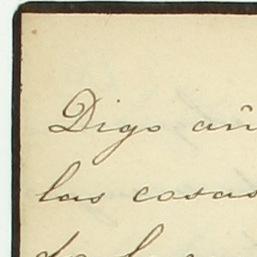 Digo añ
las cosas